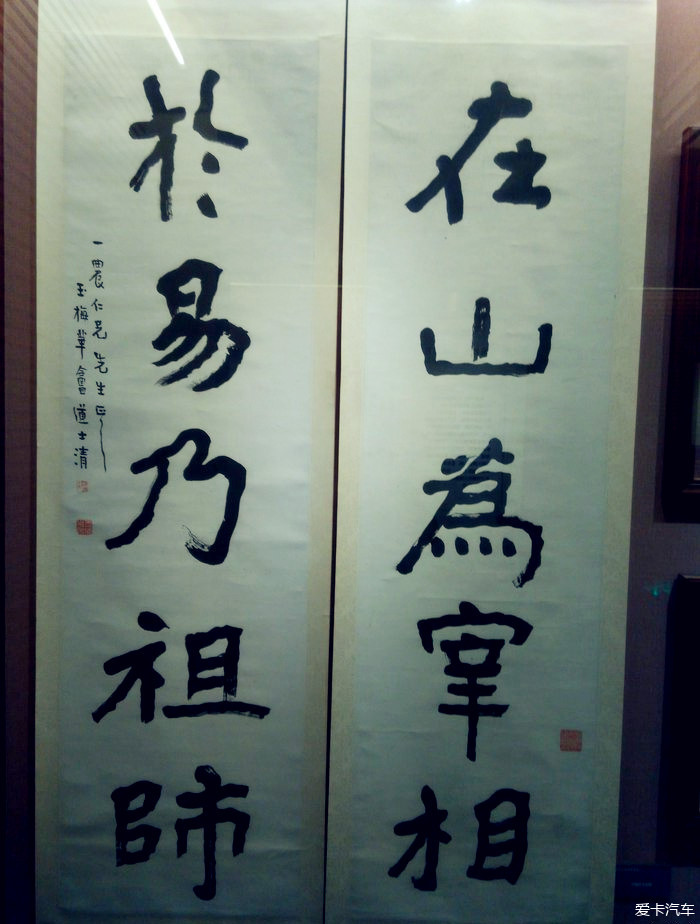 在山為宰相
於易乃祖師
一農仁兄先生正
玉梅華盦道士清
爱卡汽车